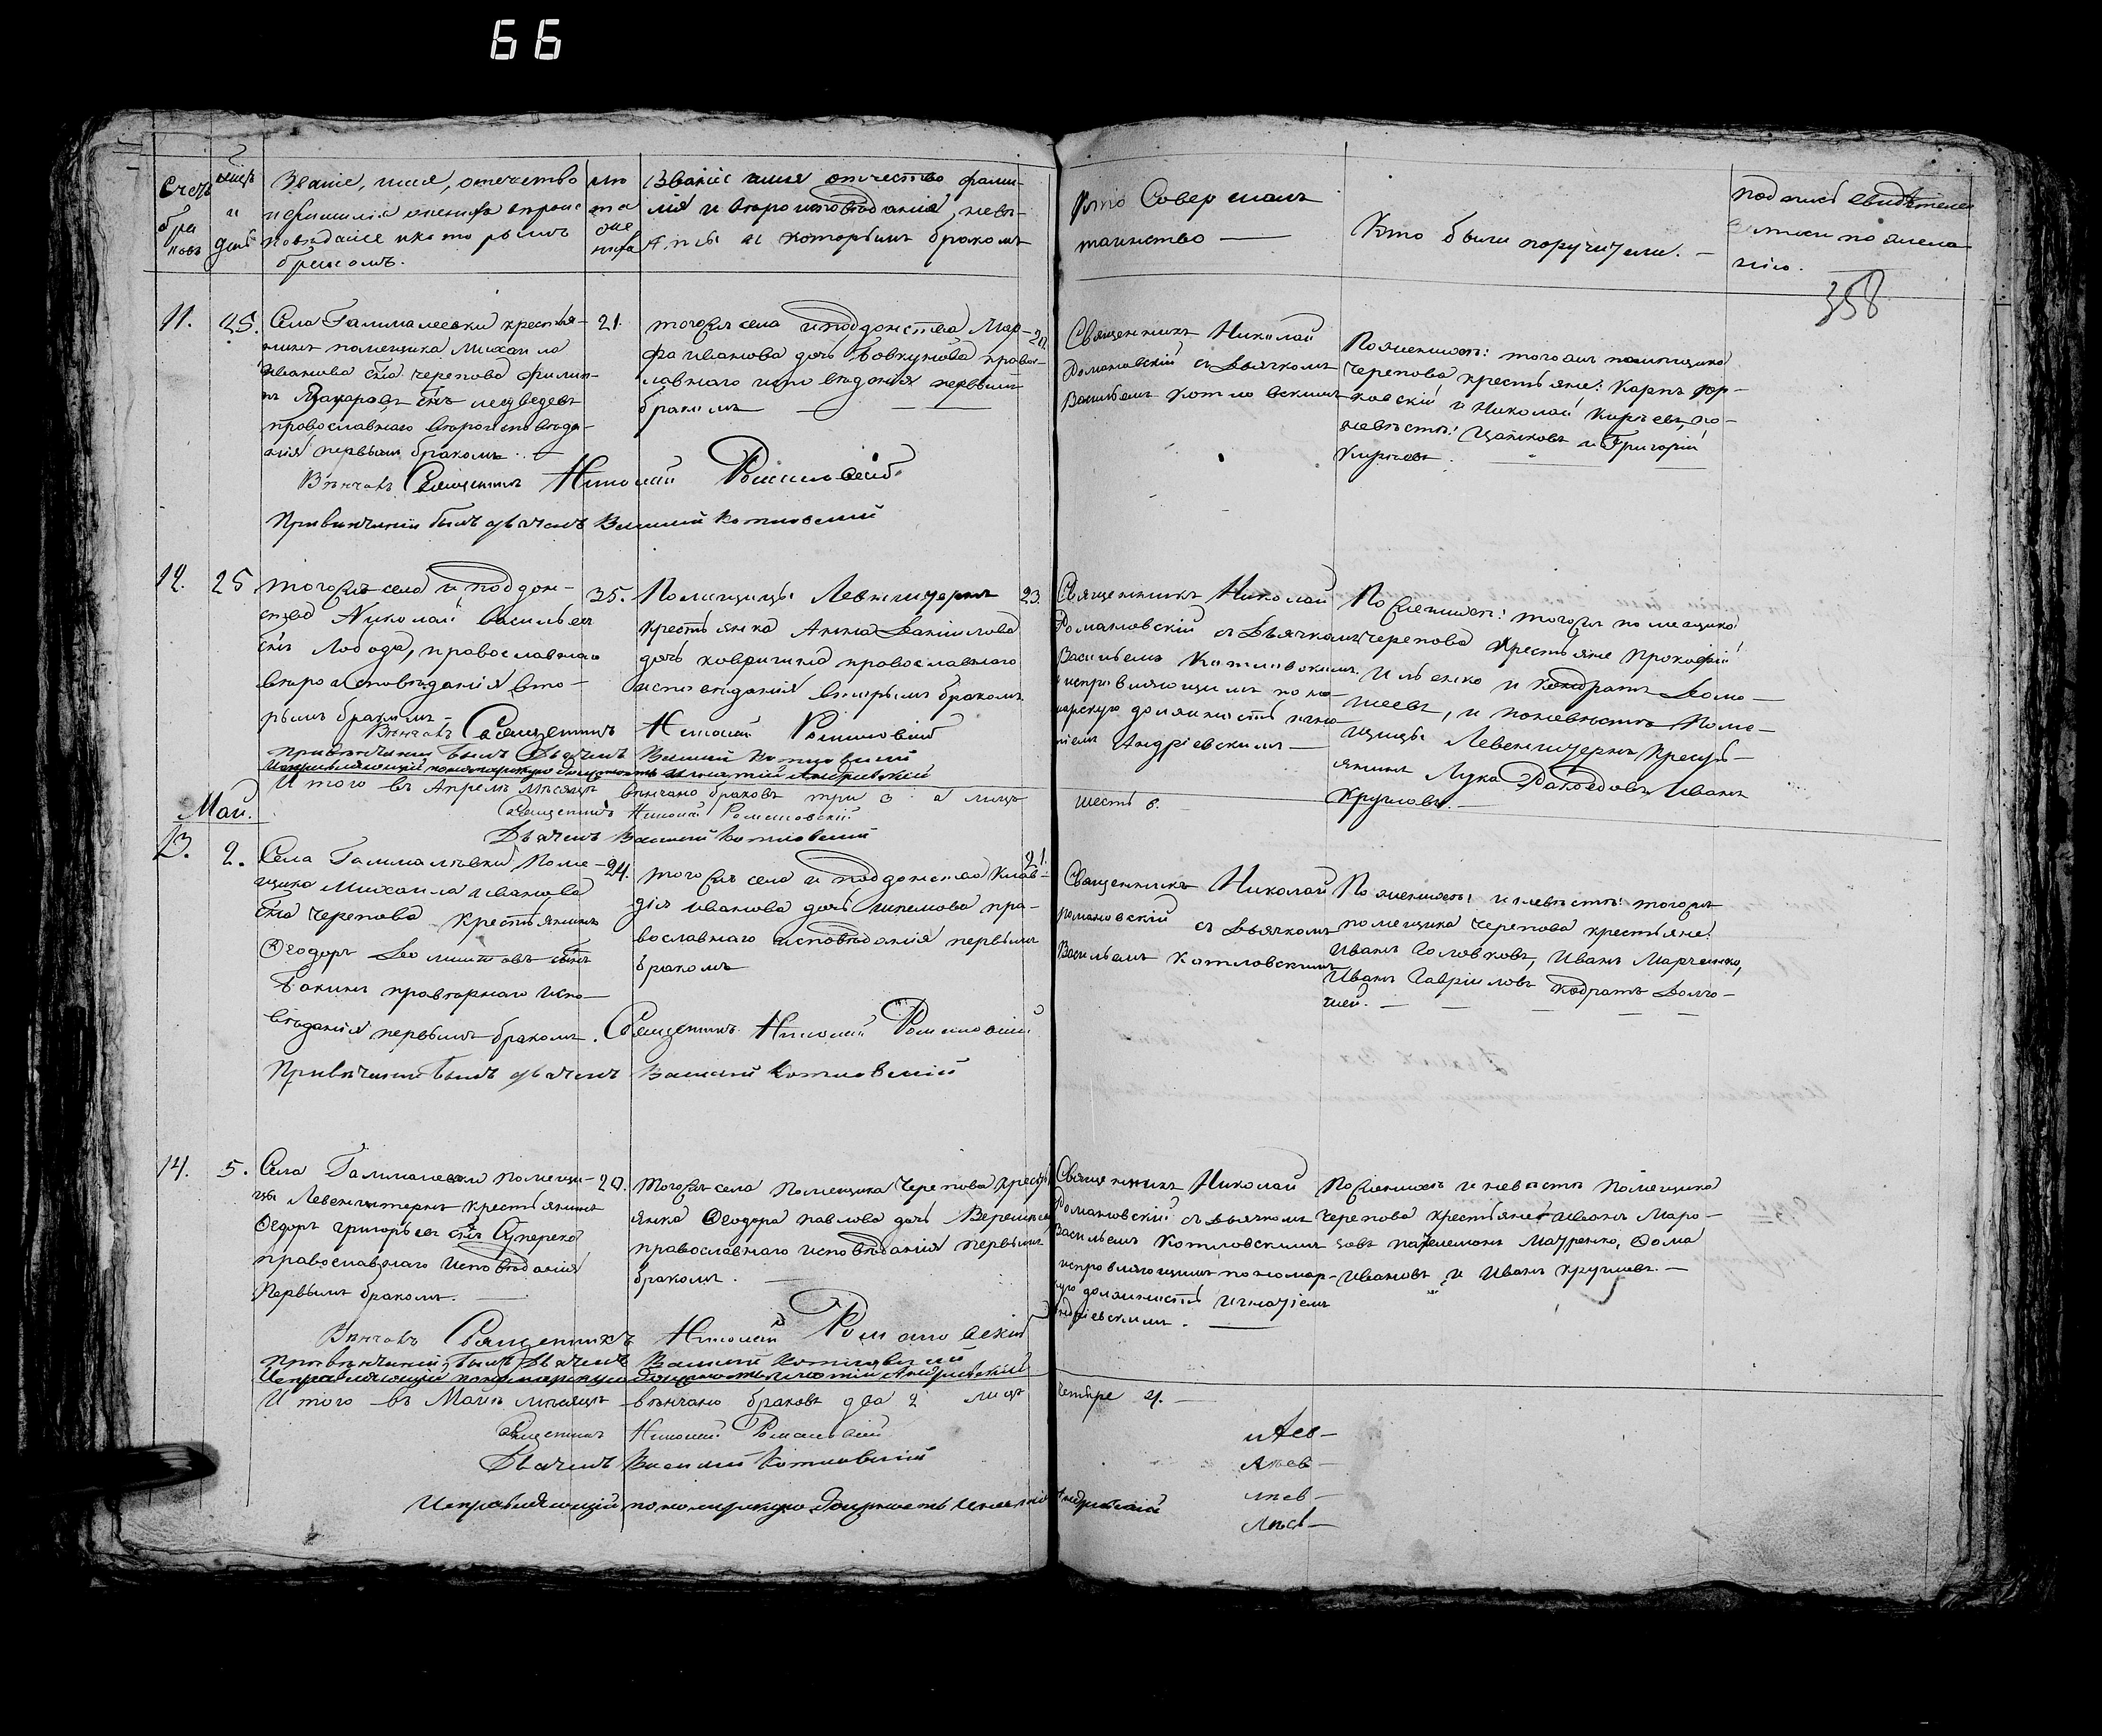 66
Счетъ браковъ
мѣсяцъ и день
Званіе, имя, отечество
и фамилія жениха вѣроис
повѣданіе и которымъ
бракомъ.
лѣта жениха
Званіе имя отчество фами-
лія и вѣроисповѣданія, невѣ-
сты и которымъ бракомъ
Кто Совершалъ
таинство
Кто были поручители.
подпись свидѣтелей
записи по жела
нію.
358
11.
25.
Села Галмалеевки крестья-
нинъ помещика Михаила
Иванова сна Черепова Филип-
пъ Захаровъ снъ медведевъ
православнаго вѣроисповѣда-
нія первымъ бракомъ
21.
тогожъ села и подданства Мар-
фа Иванова дочь Бовкунова право-
лавнаго исповѣданія первымъ
бракомъ
Священникъ Николай
Романовскій съ Дьячкомъ
Васильемъ Котловскимъ
По женихѣ: тогожъ помещика
Черепова крестьяне: Карпъ
и Николай Кирѣевъ, по
невѣстѣ: и Григорій
Вѣнчавъ Священникъ Николай Романовскій
При вѣнчаніи былъ дьячекъ Василій Котловскій
12.
25
тогожъ села и поддан-
ства Николай Васильевъ
снъ Лобода, православнаго
вѣроисповѣданія вто-
рымъ бракомъ
35.
Помещицы Левенштернъ
крестьянка Анна Данилова
дочь ковригина православнаго
исповѣданія вторымъ бракомъ
23.
Священникъ Николай
Романовскій съ Дьячкомъ
Васильемъ Котловскимъ
и исправляющимъ поно-
марскую должность Игна-
тіемъ Андріевскимъ
По женихѣ: тогожъ помещика
Черепова крестьяне Прокофій
Ильенко и Кондратъ
и по невѣстѣ Поме-
щицы Левенштернъ Кресть-
янинъ Лука Иванъ
Кругловъ.
Вѣнчавъ Священникъ Николай Романовскій
При вѣнчаніи былъ Дьячекъ Василій Котловскій
Исправляющій пономарскую должность Игнатій Андріевскій
И того въ Апрелѣ мѣсяцѣ вѣнчано браковъ три 3 а лицъ
шесть 6.
Священникъ Николай Романовскій
Дьячекъ Василій Котловскій
Май.
13.
2.
Села Галмалеевки Поме-
щика Михаила Иванова
сна Черепова Крестьянинъ
Ѳеодоръ снъ
Бакинъ испо-
вѣданія первымъ бракомъ.
24.
тогожъ села и подданства Клав-
дія Иванова дочь пра-
вославнаго исповѣданія первымъ
бракомъ
21.
Священникъ Николай
Романовскій съ Дьячкомъ
Васильемъ Котловскимъ
По женихѣ: и невѣстѣ: тогожъ
помещика Черепова крестьяне:
Иванъ Головковъ, Иванъ Марченко,
Иванъ Гавриловъ
Священникъ Николай Романовскій
При вѣнчаніи былъ дьячекъ Василій Котловскій
14.
5.
Села Галмалеевки помещи-
цы Левенштернъ крестьянинъ
Ѳедоръ Григорьевъ снъ
православнаго исповѣданія
первымъ бракомъ.
20.
Тогожъ села Помещика Черепова кресть-
янка Ѳеодора Павлова дочь
православнаго исповѣданія первымъ
бракомъ.
Священникъ Николай
Романовскій съ Дьячкомъ
Васильемъ Котловскимъ
исправляющимъ пономар-
скую должность Игнатіемъ
Андріевскимъ.
По женихѣ и невѣстѣ Помещика
Черепова крестьяне Иванъ Маро-
Ѳома
Ивановъ и Иванъ Кругловъ.
Вѣнчавъ Священникъ Николай Романовскій
При вѣнчаніи былъ Дьячекъ Василій Котловскій
Исправляющій пономарскую должность Игнатій Андріевскій
И того въ Маѣ мѣсяцѣ вѣнчано браковъ два 2 лицъ
четыре 4.
Священникъ Николай Романовскій
Дьячекъ Василій Котловскій
Исправляющій пономарскую должность Игнатій Андріевскій